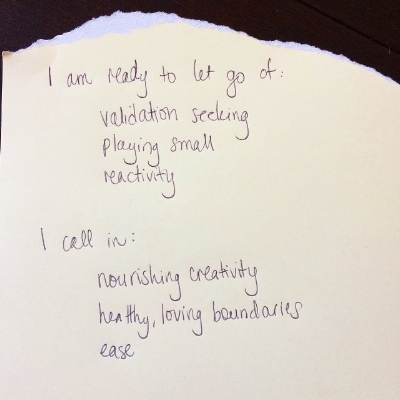 I am ready to let go of:
validation seeking
playing small
reactivity
I call in:
nourishing creativity
healthy, loving boundaries
ease